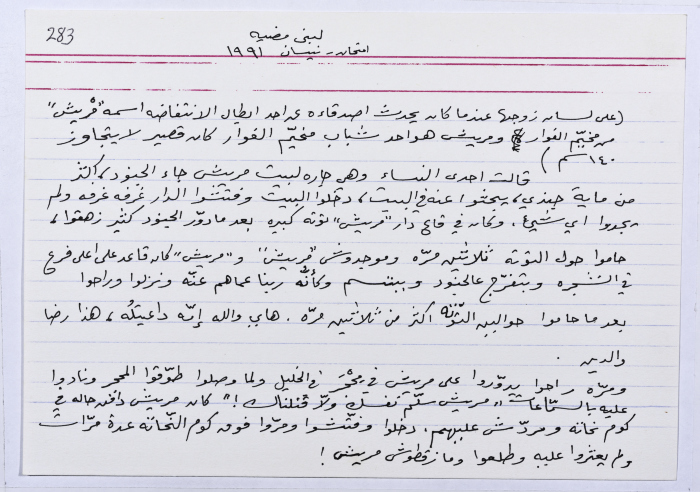 283
لبنى مضيه
امتحان - نيسان ١٩٩١
(على لسان زوجها عندما كان يحدث اصدقاءه عن احد ابطال الانتفاضه اسمه "قْريش"
من مخيّم الفوار ومريش هو احد شباب مخيّم الفوار كان قصير لا يتجاوز
١٤٠ سم )
قالت احدى النساء وهي جاره لبيت مريش جاء الجنود، اكثر
من ماية جندي، يبحثوا عنه في البيت، دخلوا البيت وفتشوا الدار غرفه غرفه ولم
يجدوا اي شيئ، وكان في قاع دار "مريش" توته كبيره بعد ما دوّر الجنود كثير زهقوا،
حاموا حول التوتة ثلاثين مرّه وموجدوش "مريش" و"مريش" كان قاعد على اعلى فرع
في الشجره وبتفرّج عالجنود وببتسم وكأنُّه ربنا عماهم عنّه ونزلوا وراحوا
بعد ما حاموا حوالين التّوْتة اكثر من ثلاثين مرّه. هاي والله إنّه داعيتله، هذا رضا
والدين .
ومرّه راحوا يدوّروا على مريش في مِحْجَر في الخليل ولما وصلوا طوّقوا المحجر ونادوا
عليه بالسمّاعات "مريش سلّم نفسك ولّا قتلناك!" كان مريش دافن حاله في
كوم نحاته ومردّش عليهم، دخلوا وفتّشوا ومرّوا فوق كوم النّحاتة عدة مرّات
ولم يعثروا عليه وطلعوا وما زقطوش مريش !